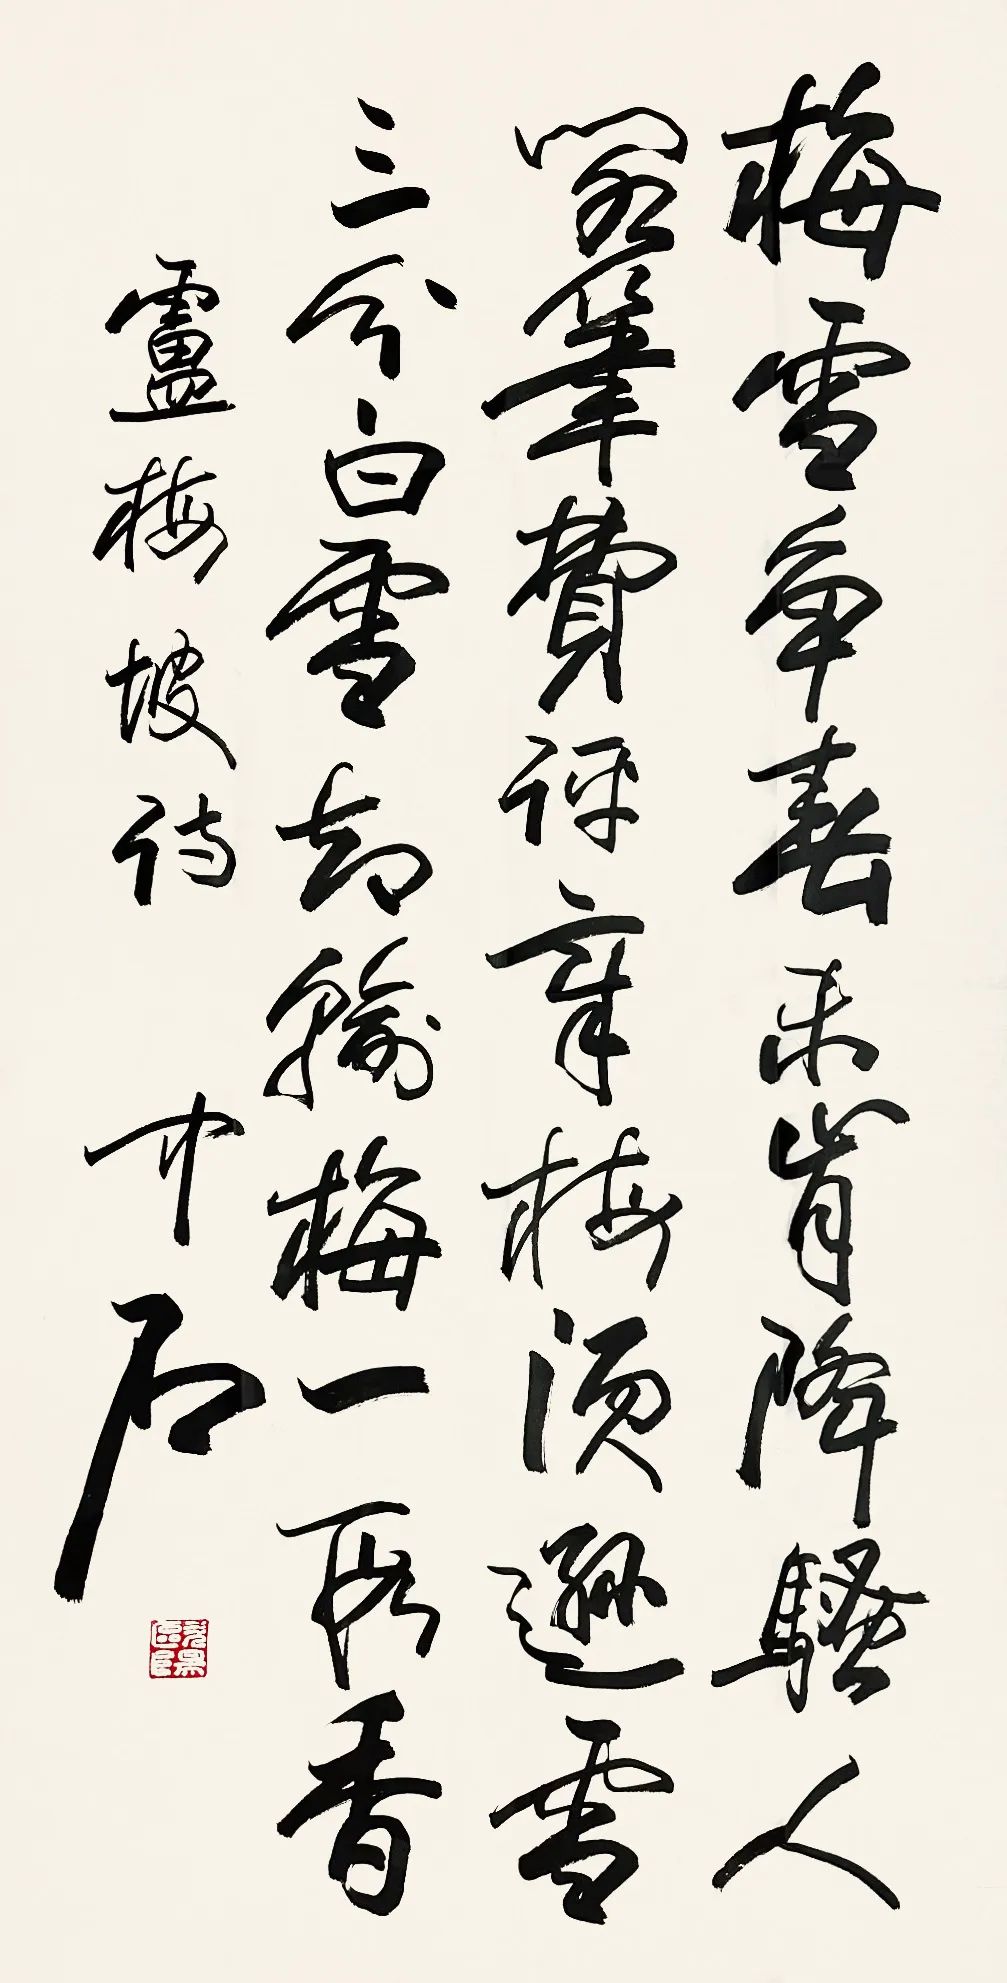 梅雪争春未肯降騷人
閣筆費評章梅須遜雪
三分白雪却輸梅一段香
盧梅坡詩 中石